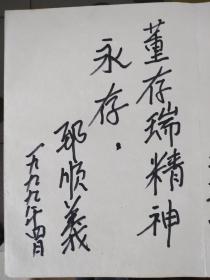 董存瑞精神
永存。
郅顺义
一九九九年四月